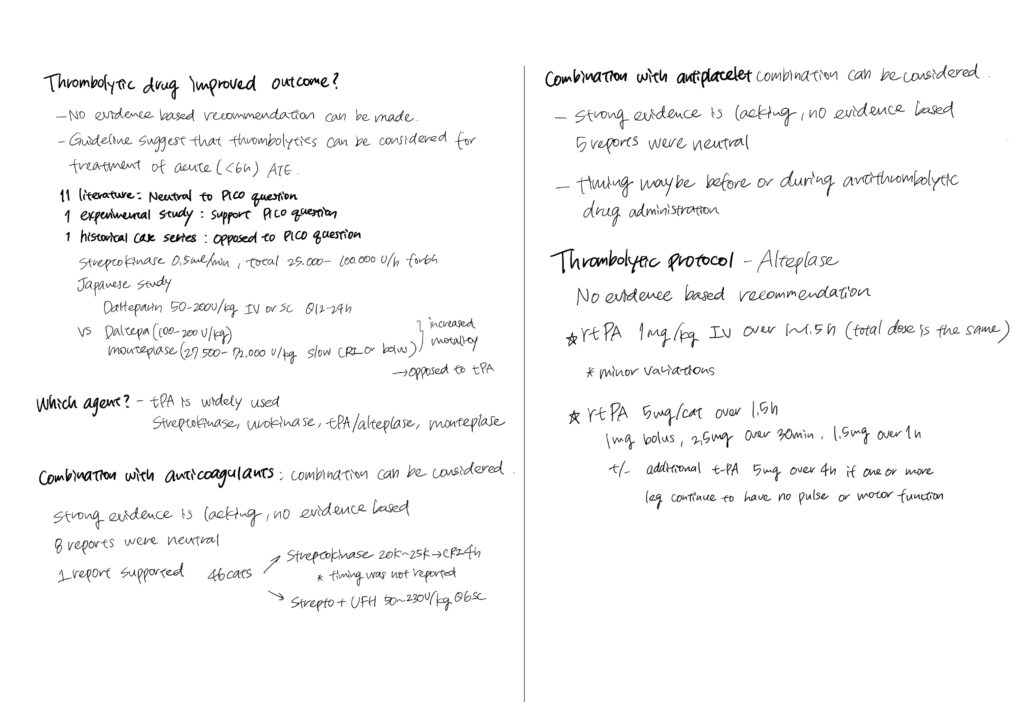 Thrombolytic drug improved outcome?
- No evidence based recommendation can be made.
- Guideline suggest that thrombolytics can be considered for
treatment of acute (<6h) ATE.
11 literature : Neutral to PICO question
1 experimental study : support PICO question
1 historical case series : opposed to PICO question
Streptokinase 0.5ml/min, total 25.000- 100.000 U/h for 6h
Japanese study
Dalteparin 50-200U/kg IV or SC Q12-24h
VS Daltepa (100-200 U/kg)
monteplase (27.500- 72.000 U/kg slow CRI or bolus)
increased
→ opposed to tPA
Which agent? - tPA is widely used
Streptokinase, urokinase, tPA/alteplase, monteplase
Combination with anticoagulants : combination can be considered.
Strong evidence is lacking, no evidence based
8 reports were neutral
1 report supported 46cats
Streptokinase 20k~25k→CRI 4h
* timing was not reported
Strepto + UFH 50~230U/kg Q6 SC
Combination with antiplacelet combination can be considered.
- Strong evidence is lacking, no evidence based
5 reports were neutral
- timing maybe before or during antithrombolytic
drug administration
Thrombolytic protocol - Alteplase
No evidence based recommendation
☆ rtPA 1mg/kg IV over 1~1.5h (total dose is the same)
* minor variations
☆ rtPA 5mg/cat over 1.5h
1mg bolus, 2.5mg over 30min, 1.5mg over 1h
+/- additional t-PA 5mg over 4h if one or more
leg continue to have no pulse or motor function